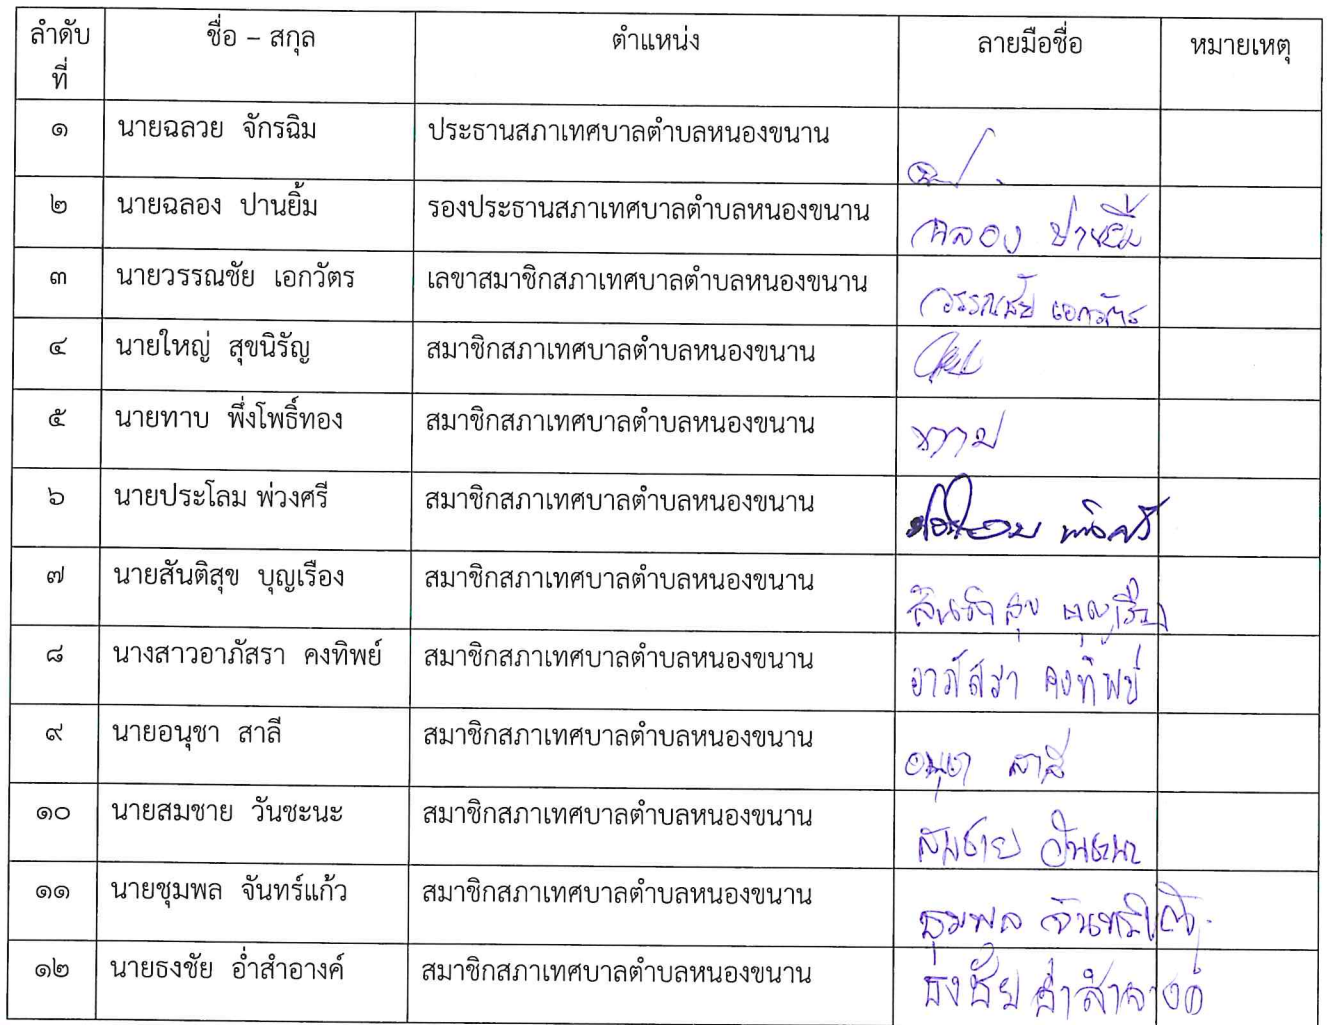 ลำดับ ชื่อ – สกุล ตำแหน่ง ลายมือชื่อ หมายเหตุ
ที่
๑ นายฉลวย จักรฉิม ประธานสภาเทศบาลตำบลหนองขนาน
๒ นายฉลอง ปานยิ้ม รองประธานสภาเทศบาลตำบลหนองขนาน ฉลอง ปานยิ้ม
๓ นายวรรณชัย เอกวัตร เลขาสมาชิกสภาเทศบาลตำบลหนองขนาน วรรณชัย เอกวัตร
๔ นายใหญ่ สุขนิรัญ สมาชิกสภาเทศบาลตำบลหนองขนาน
๕ นายทาบ พึ่งโพธิ์ทอง สมาชิกสภาเทศบาลตำบลหนองขนาน ทาบ
๖ นายประโลม พ่วงศรี สมาชิกสภาเทศบาลตำบลหนองขนาน
๗ นายสันติสุข บุญเรือง สมาชิกสภาเทศบาลตำบลหนองขนาน สันติสุข บุญเรือง
๘ นางสาวอาภัสรา คงทิพย์ สมาชิกสภาเทศบาลตำบลหนองขนาน อาภัสรา คงทิพย์
๙ นายอนุชา สาลี สมาชิกสภาเทศบาลตำบลหนองขนาน อนุชา สาลี
๑๐ นายสมชาย วันชะนะ สมาชิกสภาเทศบาลตำบลหนองขนาน สมชาย วันชะนะ
๑๑ นายชุมพล จันทร์แก้ว สมาชิกสภาเทศบาลตำบลหนองขนาน ชุมพล จันทร์แก้ว
๑๒ นายธงชัย อ่ำสำอางค์ สมาชิกสภาเทศบาลตำบลหนองขนาน ธงชัย อ่ำสำอางค์